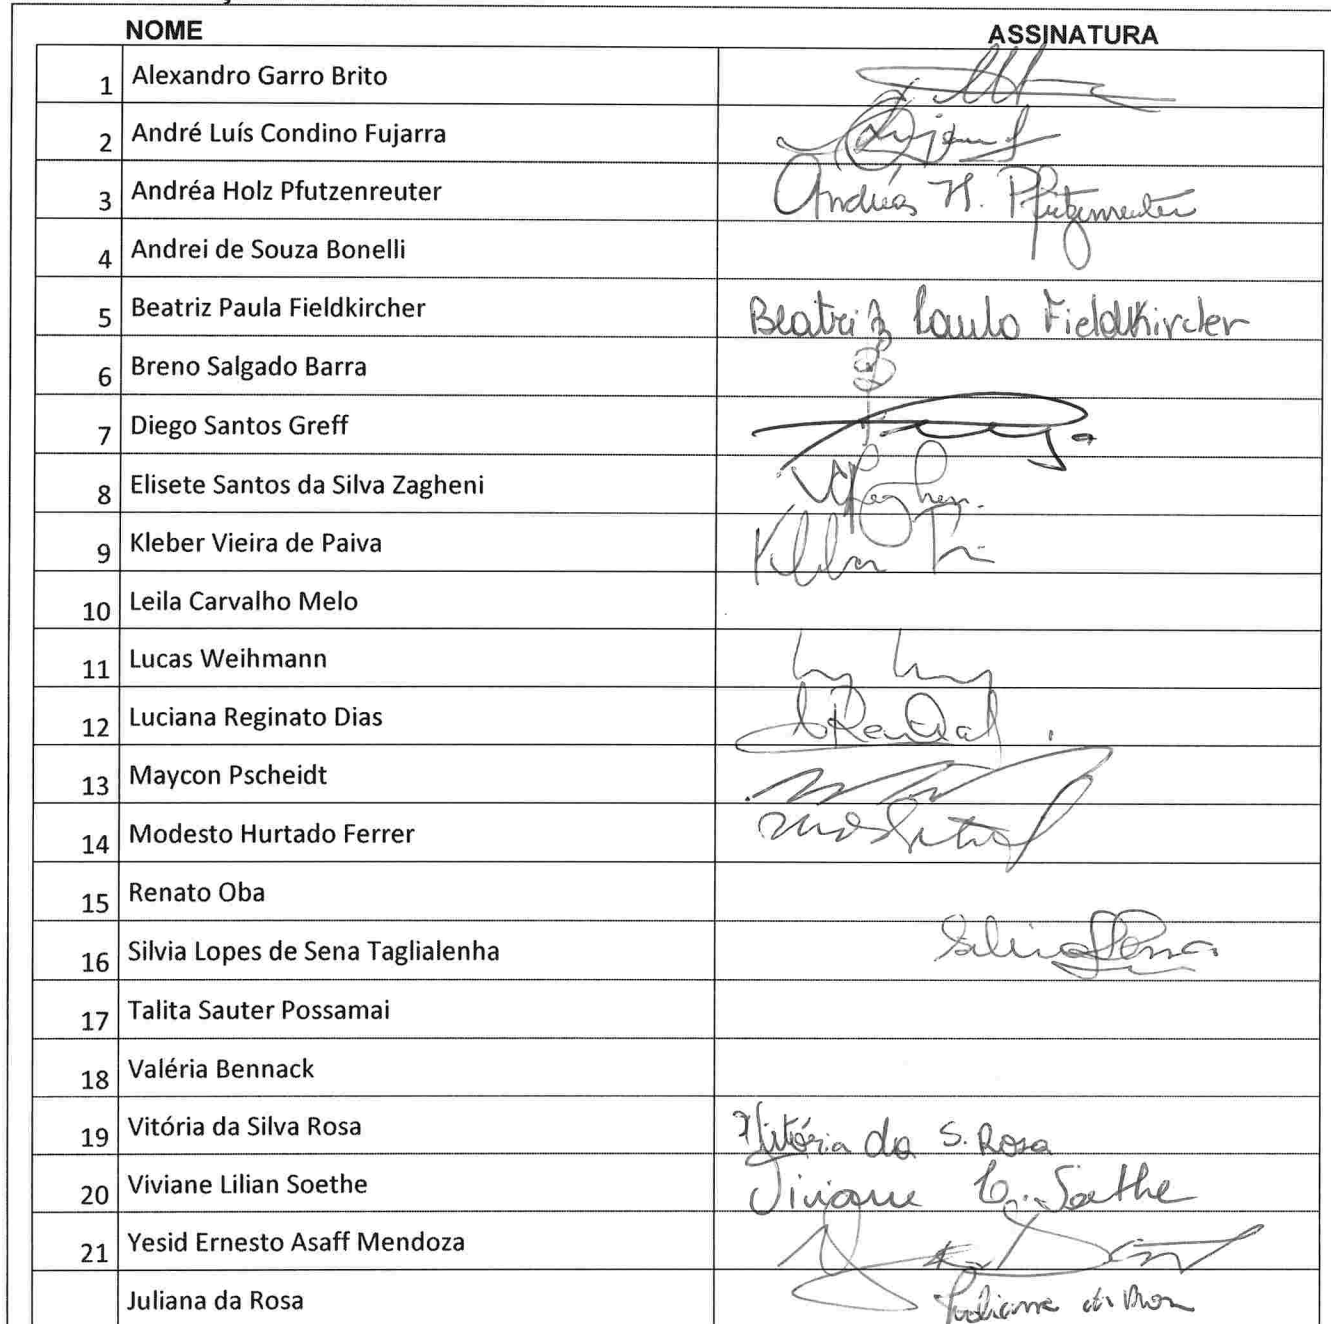 NOME ASSINATURA
1 Alexandro Garro Brito
2 André Luís Condino Fujarra
3 Andréa Holz Pfutzenreuter Andréa H. Pfutzenreuter
4 Andrei de Souza Bonelli
5 Beatriz Paula Fieldkircher Beatriz Paula Fieldkircher
6 Breno Salgado Barra
7 Diego Santos Greff
8 Elisete Santos da Silva Zagheni
9 Kleber Vieira de Paiva
10 Leila Carvalho Melo
11 Lucas Weihmann
12 Luciana Reginato Dias
13 Maycon Pscheidt
14 Modesto Hurtado Ferrer
15 Renato Oba
16 Silvia Lopes de Sena Taglialenha
17 Talita Sauter Possamai
18 Valéria Bennack
19 Vitória da Silva Rosa Vitória da S. Rosa
20 Viviane Lilian Soethe Viviane L. Soethe
21 Yesid Ernesto Asaff Mendoza
Juliana da Rosa